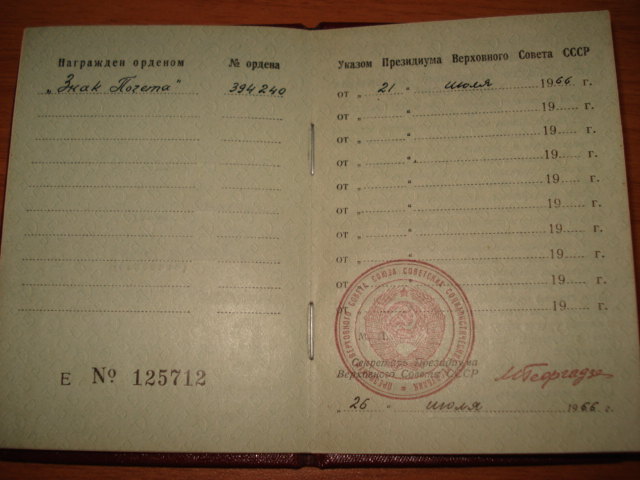 Награжден орденом № ордена
„Знак Почета“ 394240
Е № 125712
Указом Президиума Верховного Совета СССР
от „ 21 “ июля 1966 г.
от „ “ 19 г.
от „ “ 19 г.
от „ “ 19 г.
от „ “ 19 г.
от „ “ 19 г.
от „ “ 19 г.
от „ “ 19 г.
от „ “ 19 г.
от „ “ 19 г.
М. П.
Секретарь Президиума
Верховного Совета СССР
МГеоргадзе
„ 26 “ июля 1966 г.